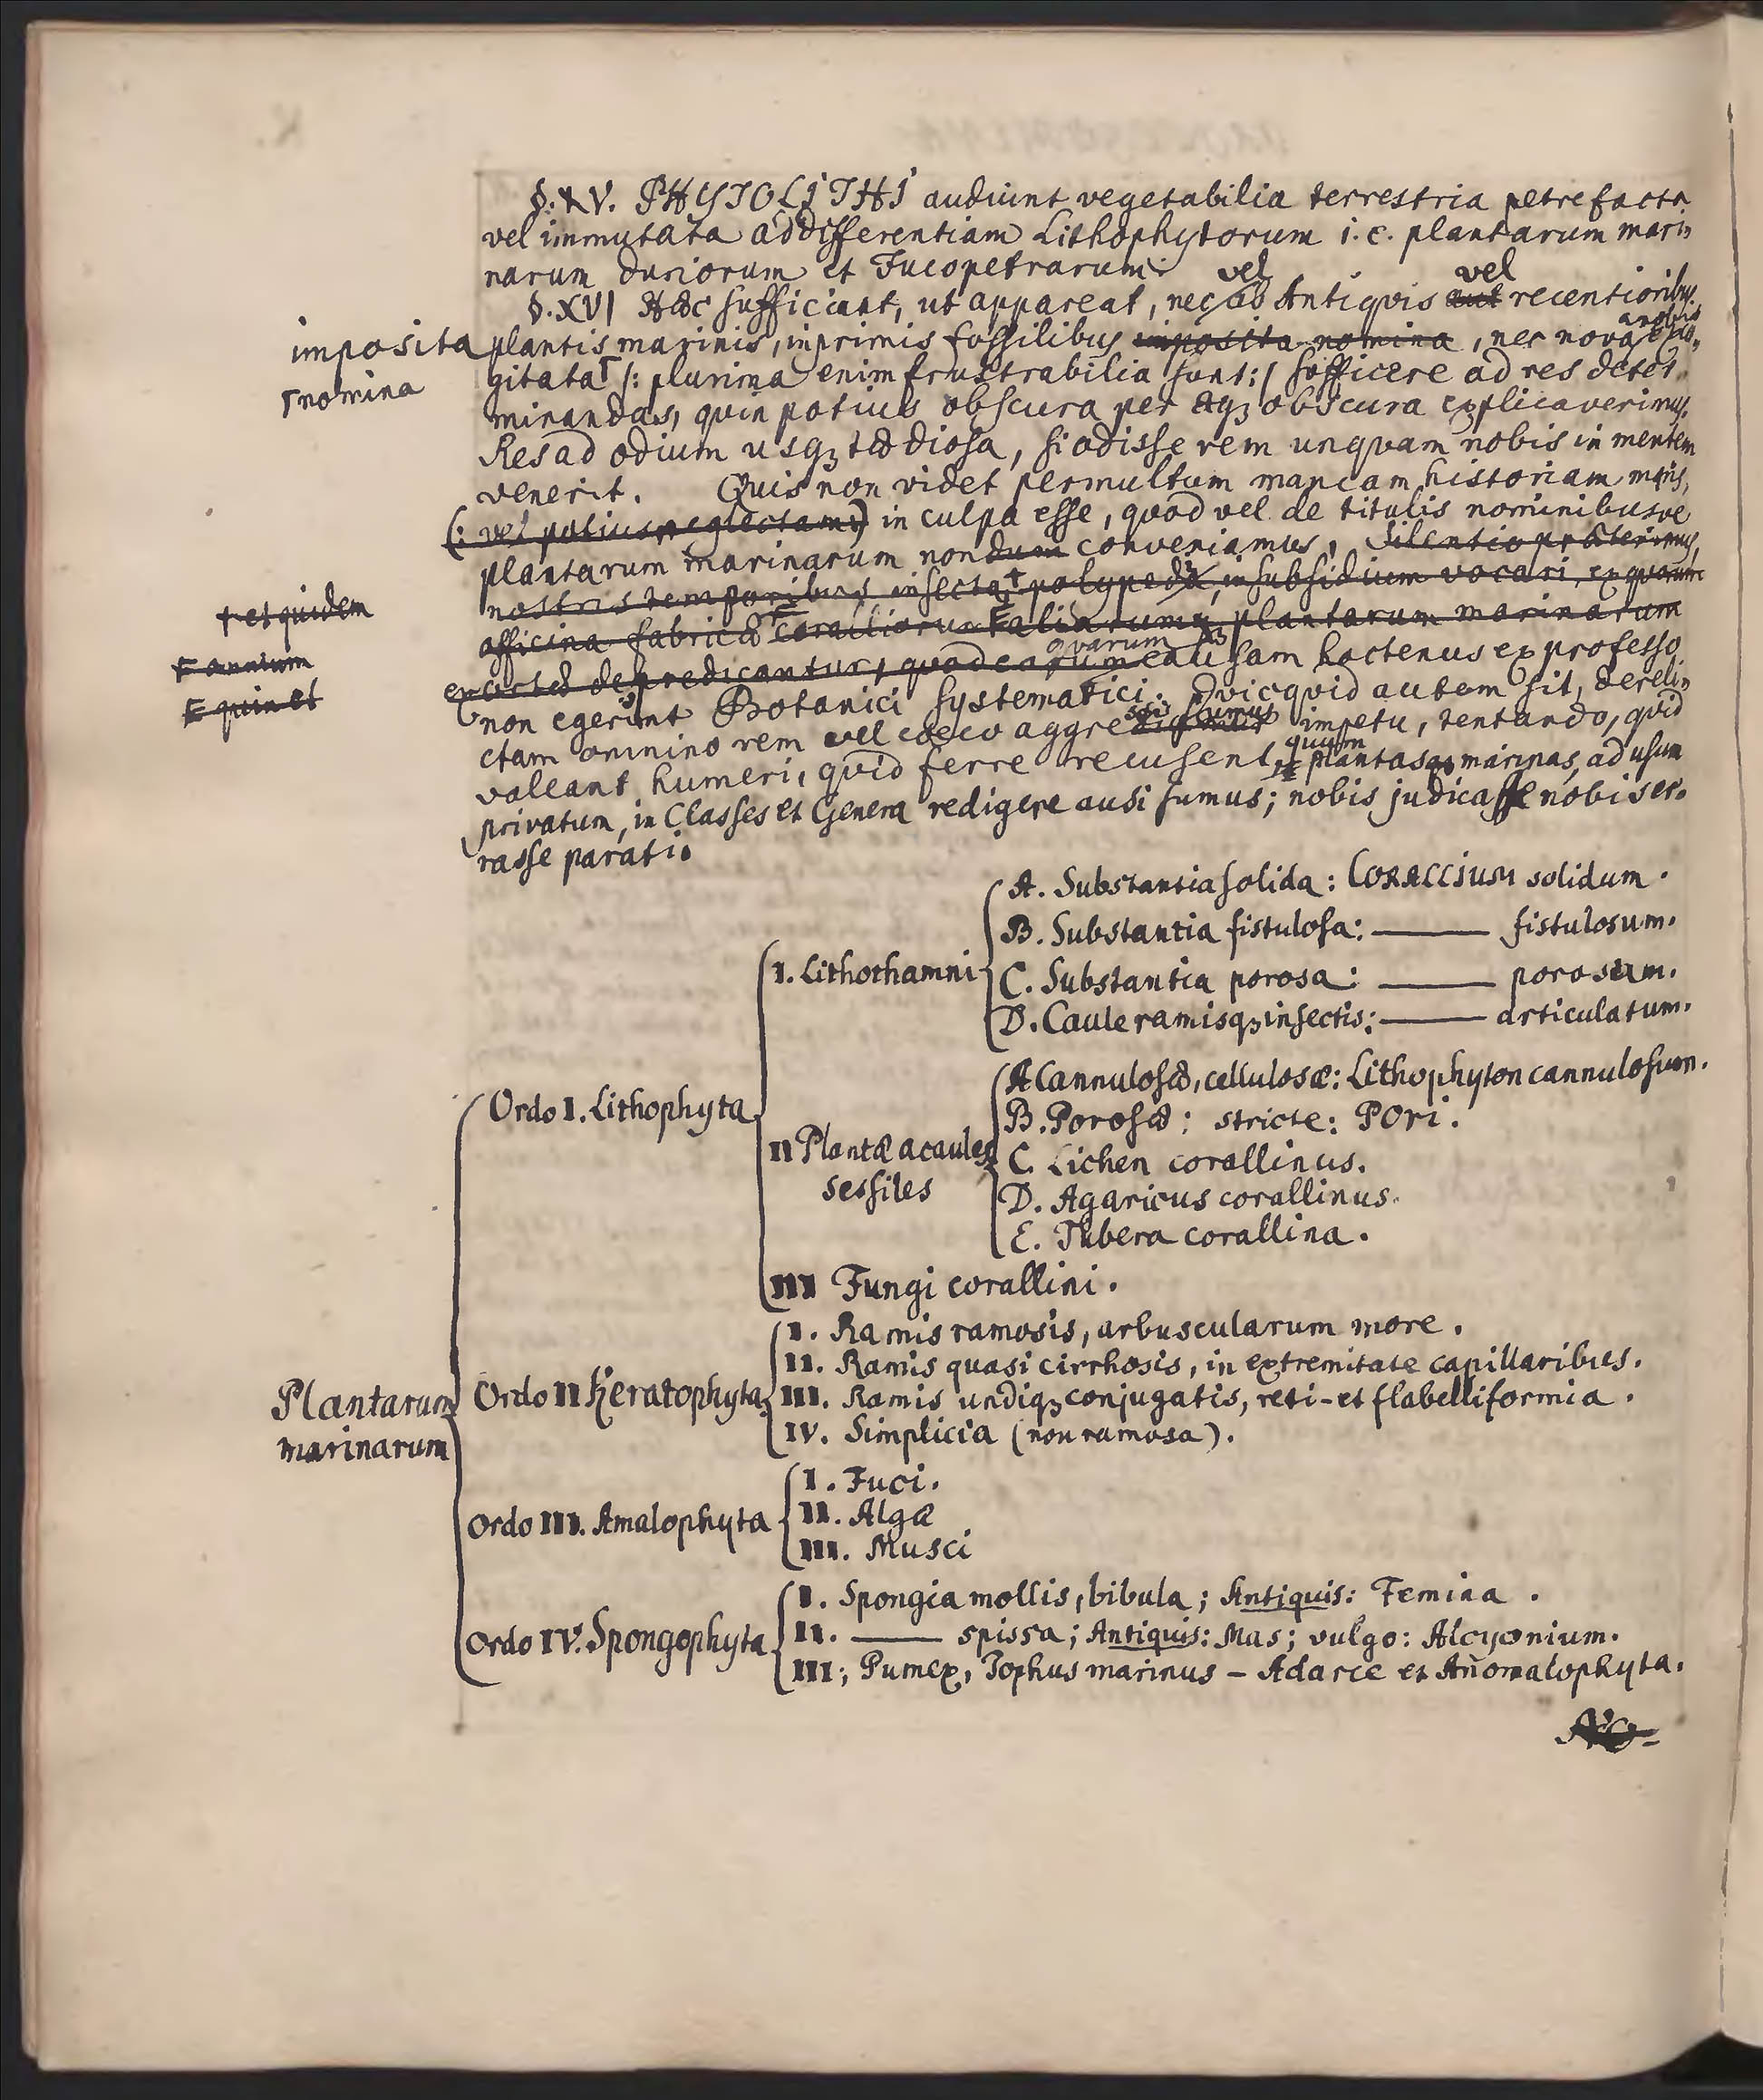 §. XV. PHYTOLITHI audiunt vegetabilia terrestria petrefacta
vel immutata ad differentiam Lithophytorum i. e. plantarum mari„
narum duriorum et Fucopetrarum.
§. XVI Hæc sufficiant, ut appareat, nec vel ab Antiquis aut vel recentioribus
imposita plantis marinis, inprimis fossilibus imposita nomina, nec nova a nobis exco„
Γ nomina
gitata Γ /: plurima enim frustrabilia sunt :/ sufficere ad res deter„
minandas, quin potius obscura per æqꝫ obscura explicaverimus.
Res ad odium usqꝫ tædiosa, si odisse rem unquam nobis in mentem
venerit. Quis non videt permultum mancam historiam
(: vel potius neglectam :) in culpa esse, quod vel de titulis nominibusve
plantarum marinarum nondum conveniamus. Silentio præterimus,
nostris temporibus insecta † polypeda, in subsidium vocari, ex quorum
† et quidem
officina fabricæ F coralliorum E aliarumqꝫ plantarum marinarum
F omnium
E quin et
deprædicantur, quod earum quarum causam hactenus ex professo
non egerint Botanici Systematici. Quicquid autem sit, dereli„
ctam omnino rem vel cæco aggressi sumus impetu, tentando, quid
valeant humeri, quid ferre recusent, quum plantas marinas, ad usum
privatum, in Classes et Genera redigere ausi sumus; nobis judicasse nobis er„
rasse parati.
Plantarum marinarum
Ordo I. Lithophyta
I. Lithothamni
A. Substantia solida: CORALLIUM solidum.
B. Substantia fistulosa: ——— fistulosum.
C. Substantia porosa: ——— porosum.
D. Caule ramisqꝫ insectis: ——— articulatum.
II Plantæ acaules sessiles
A Cannulosæ, cellulosæ: Lithophyton cannulosum.
B. Porosæ; stricte: PORI.
C. Lichen corallinus.
D. Agaricus corallinus.
E. Tubera corallina.
III Fungi corallini.
Ordo II Keratophyta
I. Ramis ramosis, arbuscularum more.
II. Ramis quasi cirrhosis, in extremitate capillaribus.
III. Ramis undiqꝫ conjugatis, reti-et flabelliformia.
IV. Simplicia (non ramosa).
Ordo III. Amalophyta
I. Fuci.
II. Algæ
III. Musci
Ordo IV. Spongophyta
I. Spongia mollis, bibula; Antiquis: Femina.
II. ——— spissa; Antiquis: Mas; vulgo: Alcyonium.
III; Pumex, Tophus marinus – Adarce et Anomalophyta.